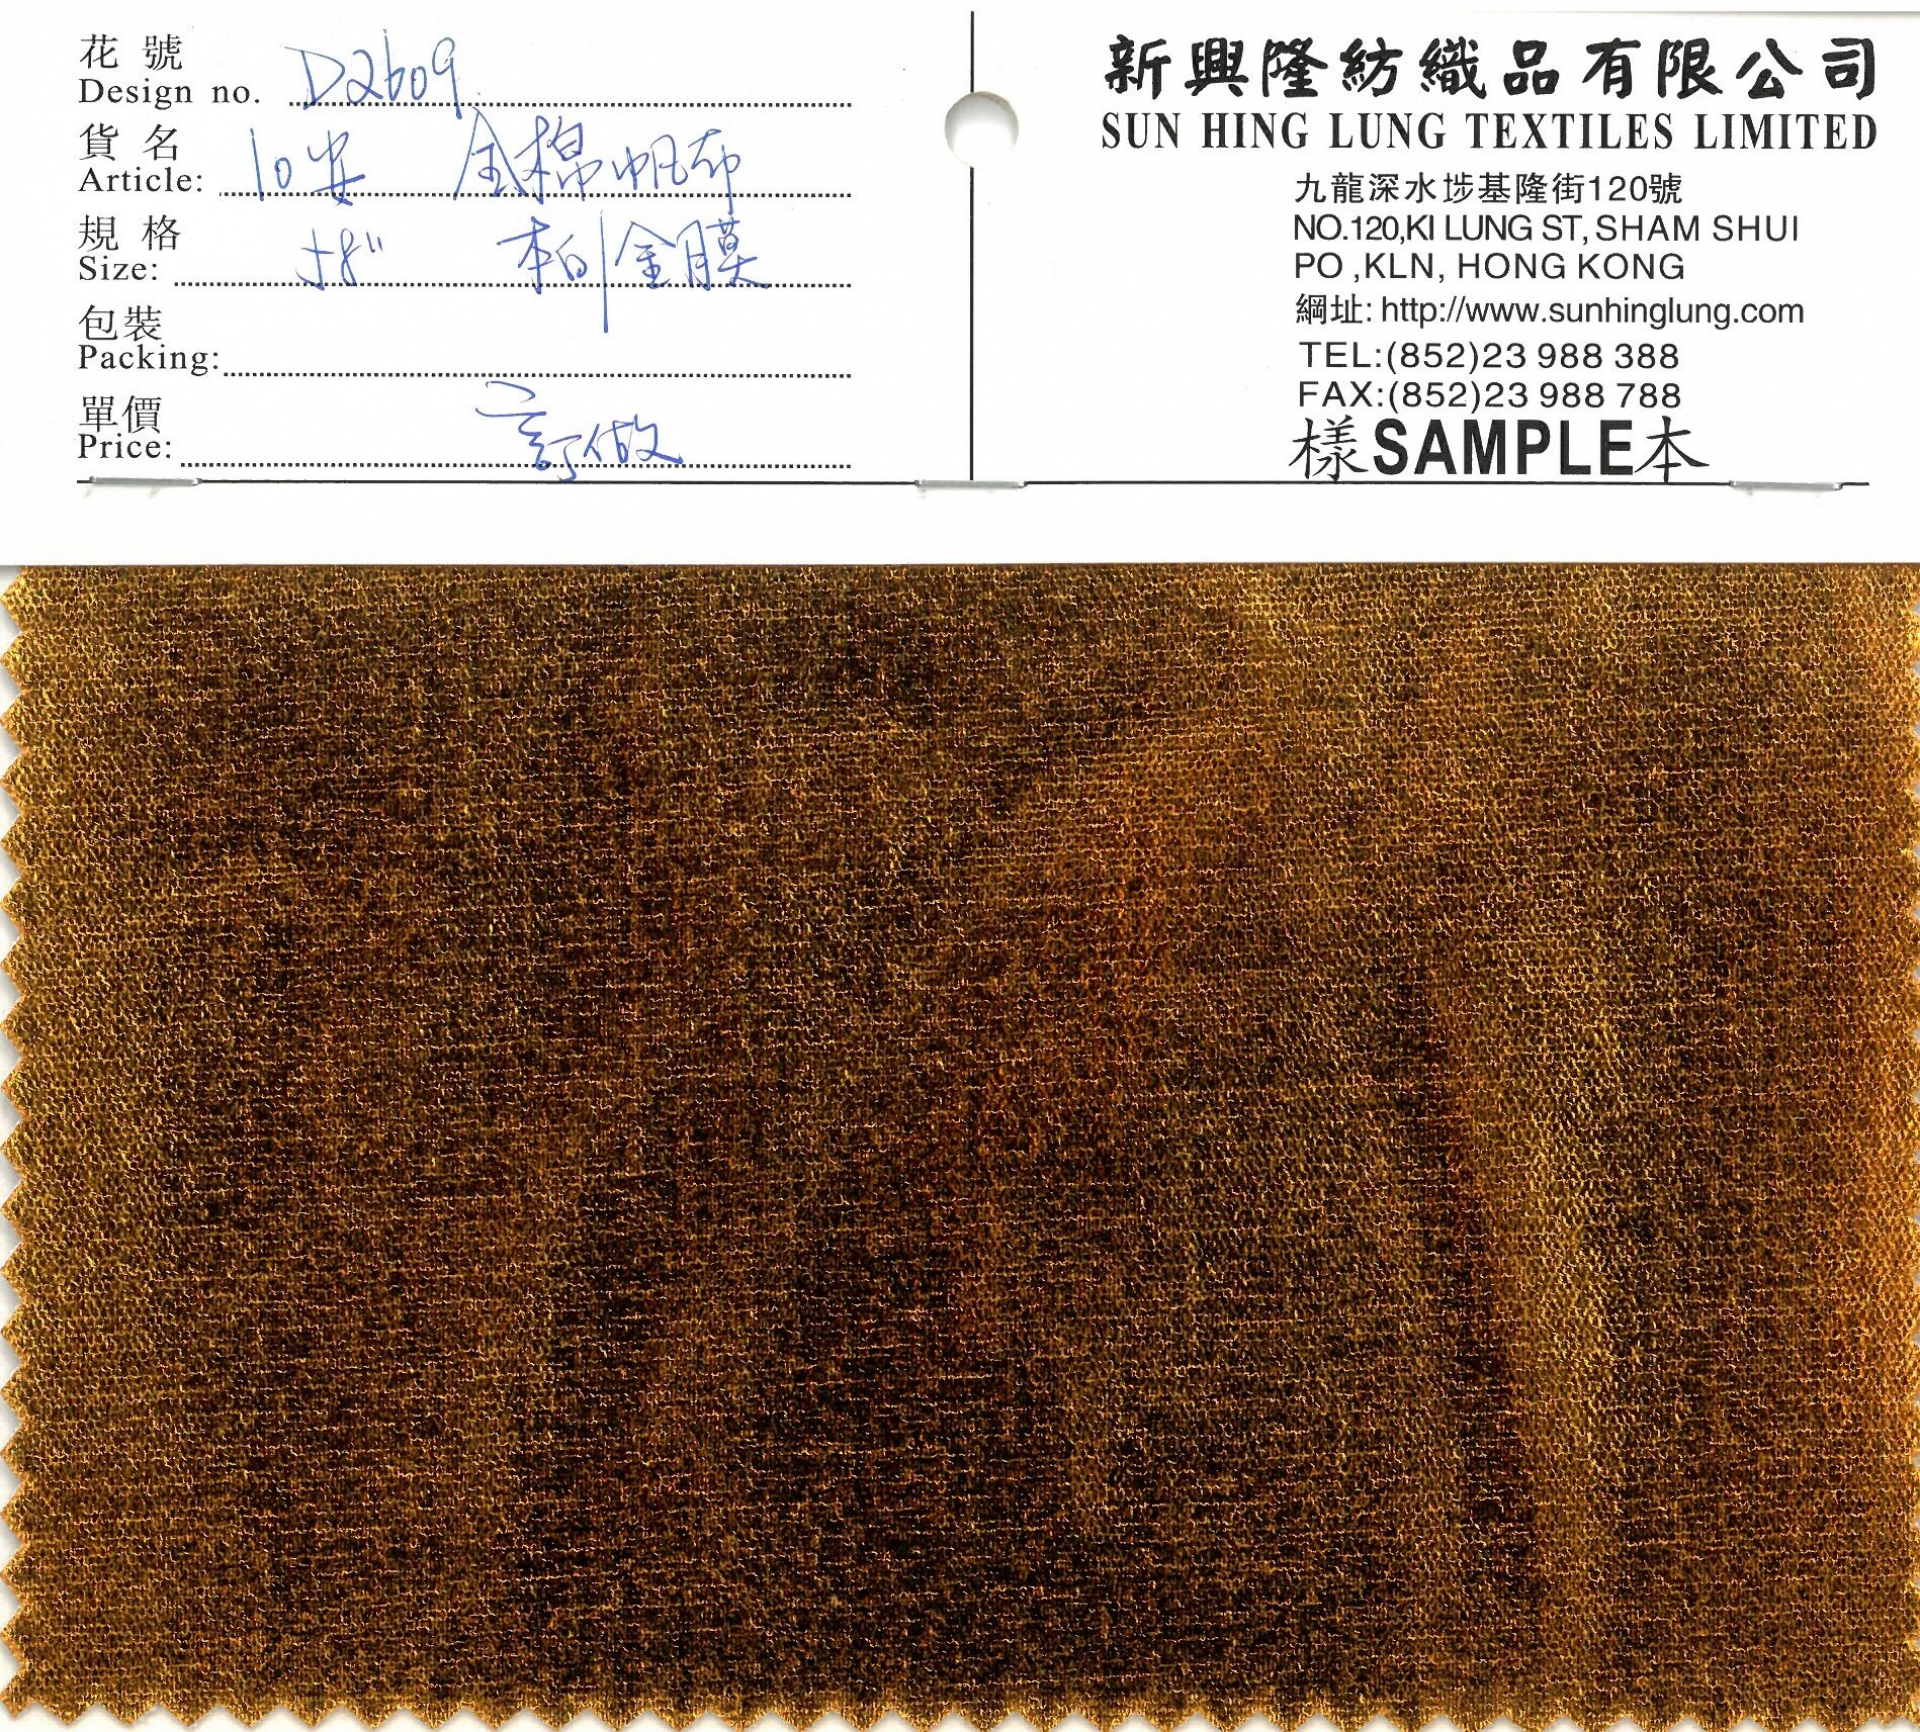 花號
Design no. D2609
貨名
Article: 10安 全棉帆布
規格
Size: 58" 本白 金膜
包裝
Packing:
單價
Price: 訂做
新興隆紡織品有限公司
SUN HING LUNG TEXTILES LIMITED
九龍深水埗基隆街120號
NO.120,KI LUNG ST, SHAM SHUI
PO ,KLN, HONG KONG
網址: http://www.sunhinglung.com
TEL:(852)23 988 388
FAX:(852)23 988 788
樣SAMPLE本